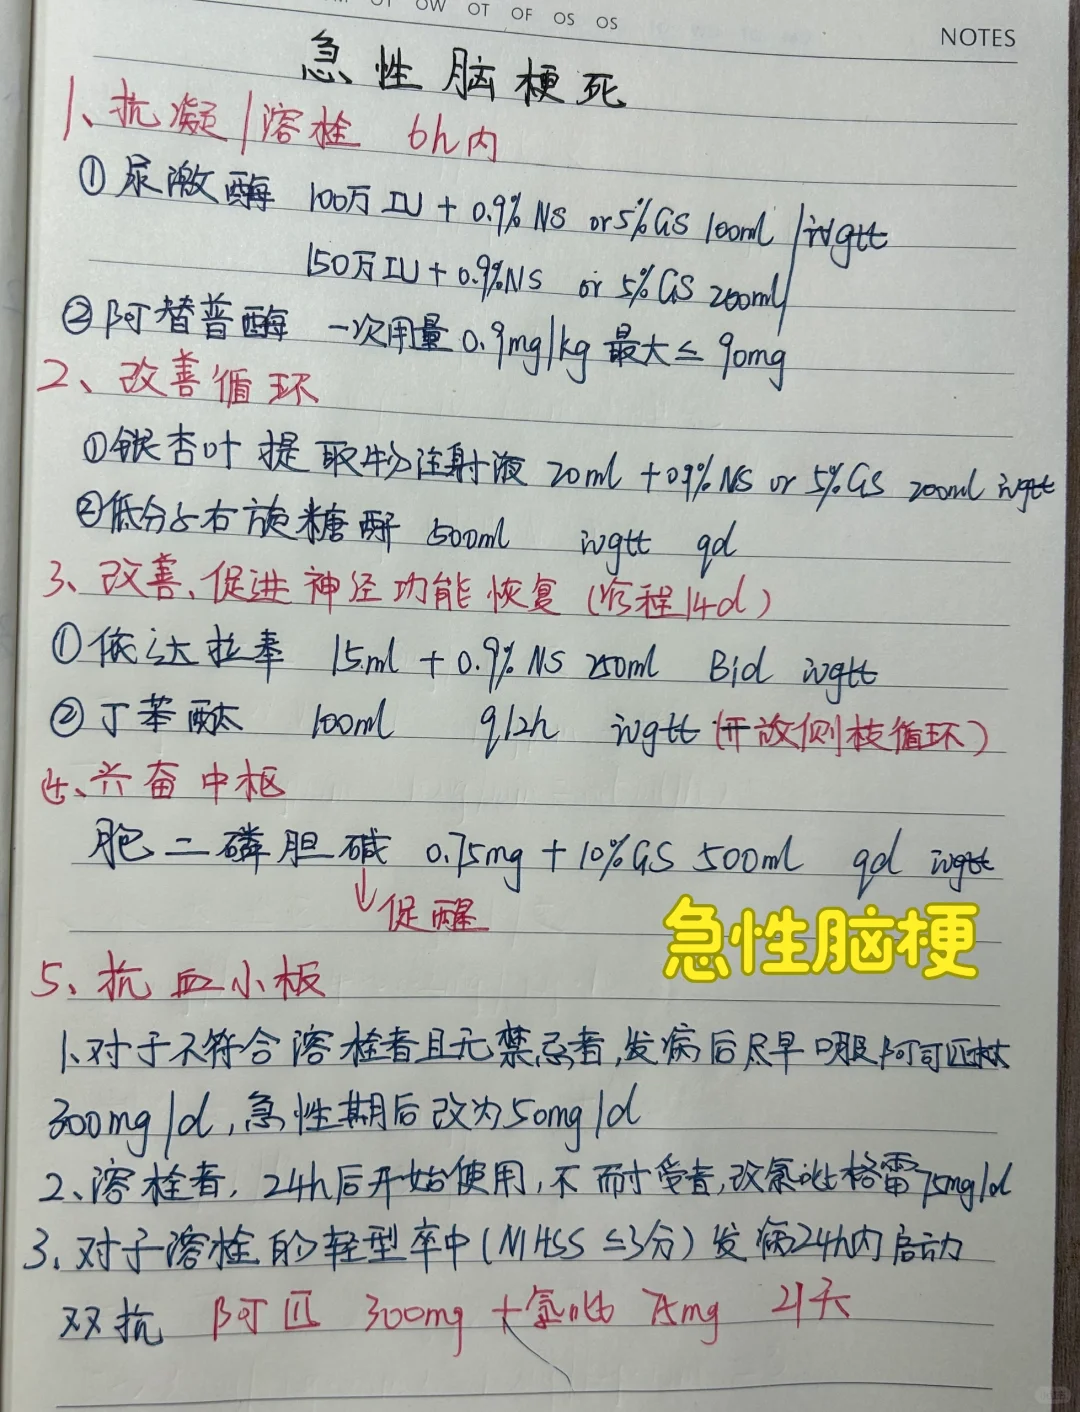 OW OT OF OS OS
NOTES
急性脑梗死
1、抗凝/溶栓 6h内
①尿激酶 100万IU + 0.9% NS or 5%GS 100ml / ivgtt
150万IU + 0.9%NS or 5%GS 200ml
②阿替普酶 一次用量 0.9mg/kg 最大≤ 90mg
2、改善循环
①银杏叶提取物注射液 20ml + 0.9% NS or 5%GS 200ml ivgtt
②低分子右旋糖酐 500ml ivgtt qd
3、改善、促进神经功能恢复(疗程14d)
①依达拉奉 15ml + 0.9% NS 250ml Bid ivgtt
②丁苯酞 100ml q12h ivgtt (开放侧枝循环)
4、兴奋中枢
胞二磷胆碱 0.75mg + 10%GS 500ml qd ivgtt
↓促醒
急性脑梗
5、抗血小板
1、对于不符合溶栓者且无禁忌者,发病后尽早口服阿司匹林
300mg/d,急性期后改为50mg/d
2、溶栓者,24h后开始使用,不耐受者,改氯吡格雷75mg/d
3、对于溶栓的轻型卒中(NIHSS ≤3分)发病24h内启动
双抗 阿匹 300mg + 氯吡 75mg 21天